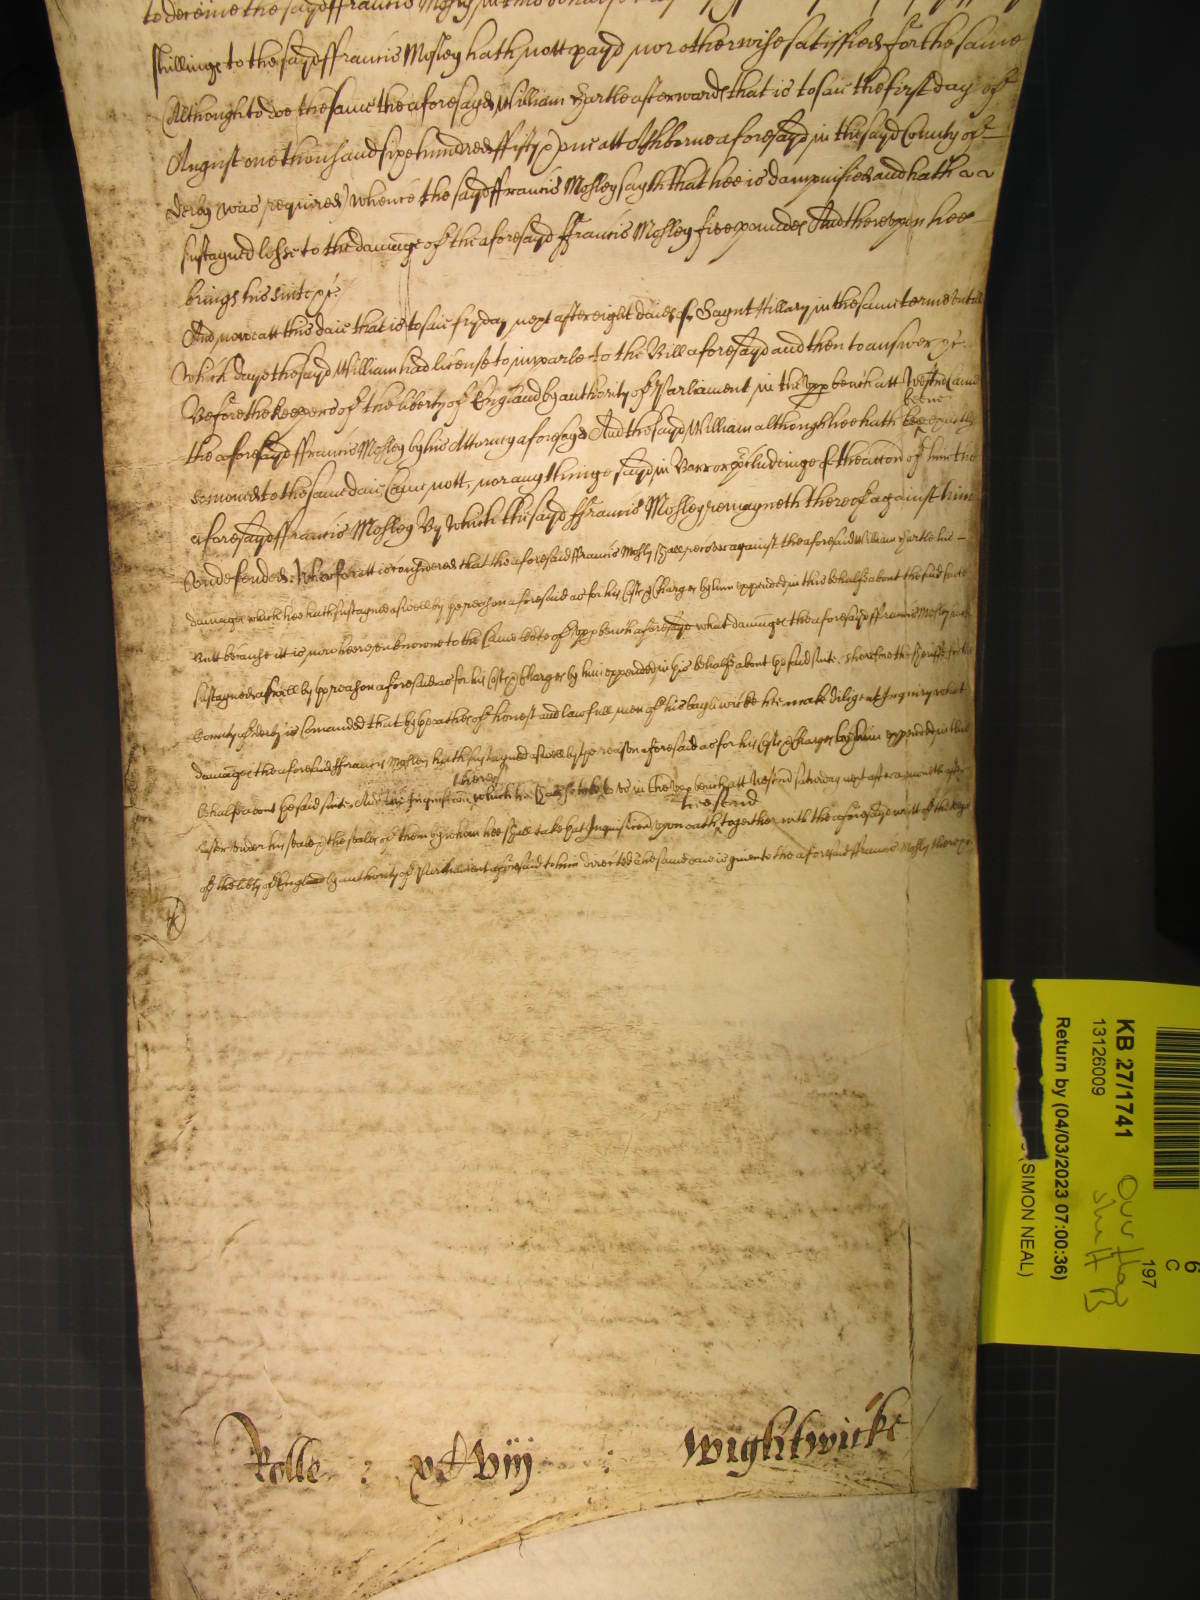 to deceive the sayd ffrancis Mosley in this behalfe
shillings to the sayd ffrancis Mosley hath nott payd nor otherwise satisfied for the same
Although to doe the same the aforesayd William Hartle afterwards that is to saie the first day of
August one thousand sixe hundred fifty one att Ashborne aforesayd in the sayd County of
Derby was required Whence the sayd ffrancis Mosley sayth that hee is dampnified and hath
sustayned losse to the damage of the aforesayd ffrancis Mosley five poundes And thereupon hee
brings his suite &c
And nowe att this daie that is to saie fryday next after eight daies of Saynt Hillary in the same terme untill
which daye the sayd William had license to imparle to the Bill aforesayd and then to answer &c
Before the keepers of the liberty of England by authority of Parliament in the upp bench att Westm came
beene
the aforesayd ffrancis Mosley by his Attorney aforesayd And the sayd William although hee hath solempnly
comoned to the same daie came nott, nor any thinge sayd in Barr or p'cludeinge of the accon of him the
aforesayd ffrancis Mosley By which the sayd ffrancis Mosley remayneth thereof against him
undefended. Therefore itt is considered that the aforesaid ffrancis Mosly shall recover against the aforesaid William Hartle his
damages which hee hath sustayned aswell by ye reason aforesaid as for his Costs & Charges by him expended in this behalfe about the said suite
Butt because itt is nowe heere unknowne to the same Court of upp bench aforesayd what damages the aforesayd ffrancis Mosley hath
sustayned aswell by ye reason aforesaid as for his Costs & Charges by him expended in his behalfe about ye said suite. Therefore the Sheriffe of the
County of Derby is Comanded that by ye oathes of honest and lawfull men of his bayliwicke hee make diligent Inquiry what
damages the aforesaid ffrancis Mosley hath sustayned aswell by ye reason aforesaid as for his Costs & Charges by him expended in this
thereof
behalfe about ye said suite. And the Inquisicon which hee shall to us in the upp bench att Westm saturday next after a moneth of
the send
Easter under his seale & the seales of them by whom hee shall take that Inquisicon upon oath together with the aforesayd writt of the keeps
of the libty of England by authority of Parliament aforesaid to him directed The same daie is given to the aforesaid ffrancis Mosly there &c
Rolle : : Wightwicke
KB 27/1741
13126009
Return by (04/03/2023 07:00:36)
(SIMON NEAL)
6
C
197